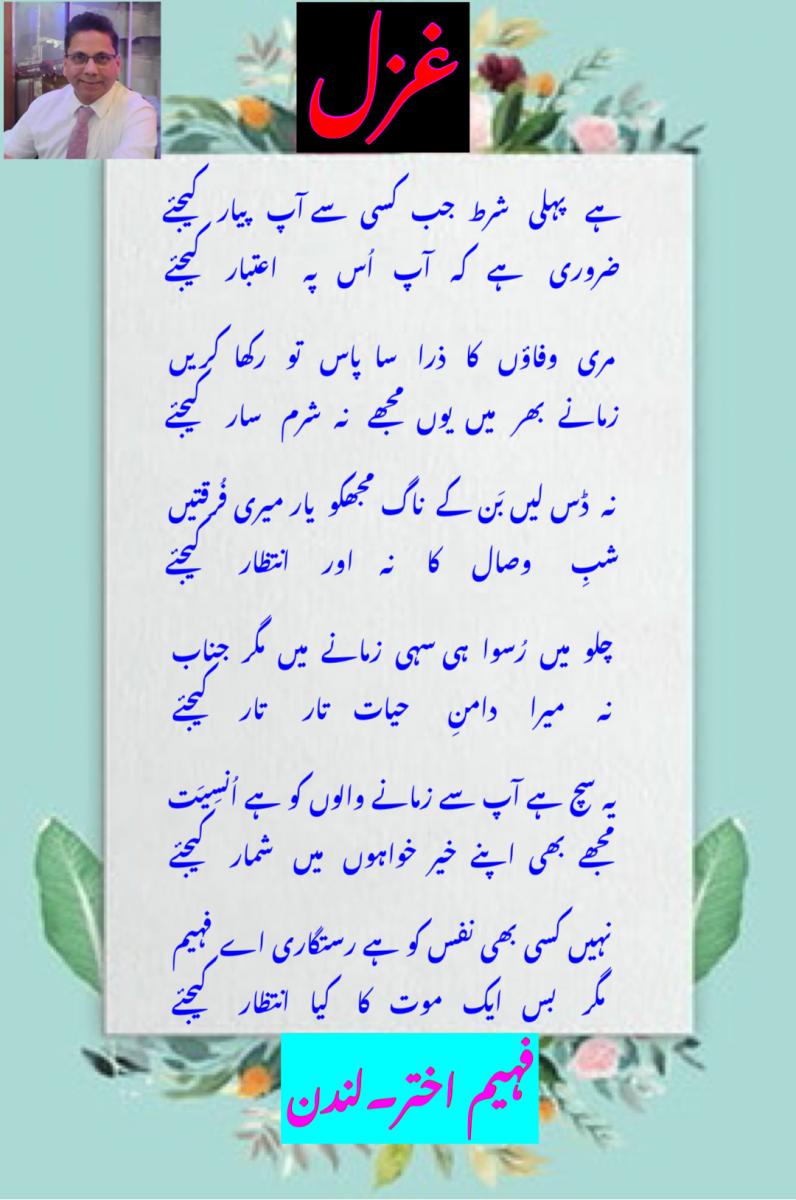 غزل
ہے پہلی شرط جب کسی سے آپ پیار کیجئے
ضروری ہے کہ آپ اُس پہ اعتبار کیجئے
مری وفاؤں کا ذرا سا پاس تو رکھا کریں
زمانے بھر میں یوں مجھے نہ شرم سار کیجئے
نہ ڈس لیں بَن کے ناگ مجھکو یار میری فُرقتیں
شبِ وصال کا نہ اور انتظار کیجئے
چلو میں رُسوا ہی سہی زمانے میں مگر جناب
نہ میرا دامنِ حیات تار تار کیجئے
یہ سچ ہے آپ سے زمانے والوں کو ہے اُنسِیَت
مجھے بھی اپنے خیر خواہوں میں شمار کیجئے
نہیں کسی بھی نفس کو ہے رستگاری اے فہیم
مگر بس ایک موت کا کیا انتظار کیجئے
فہیم اختر۔لندن